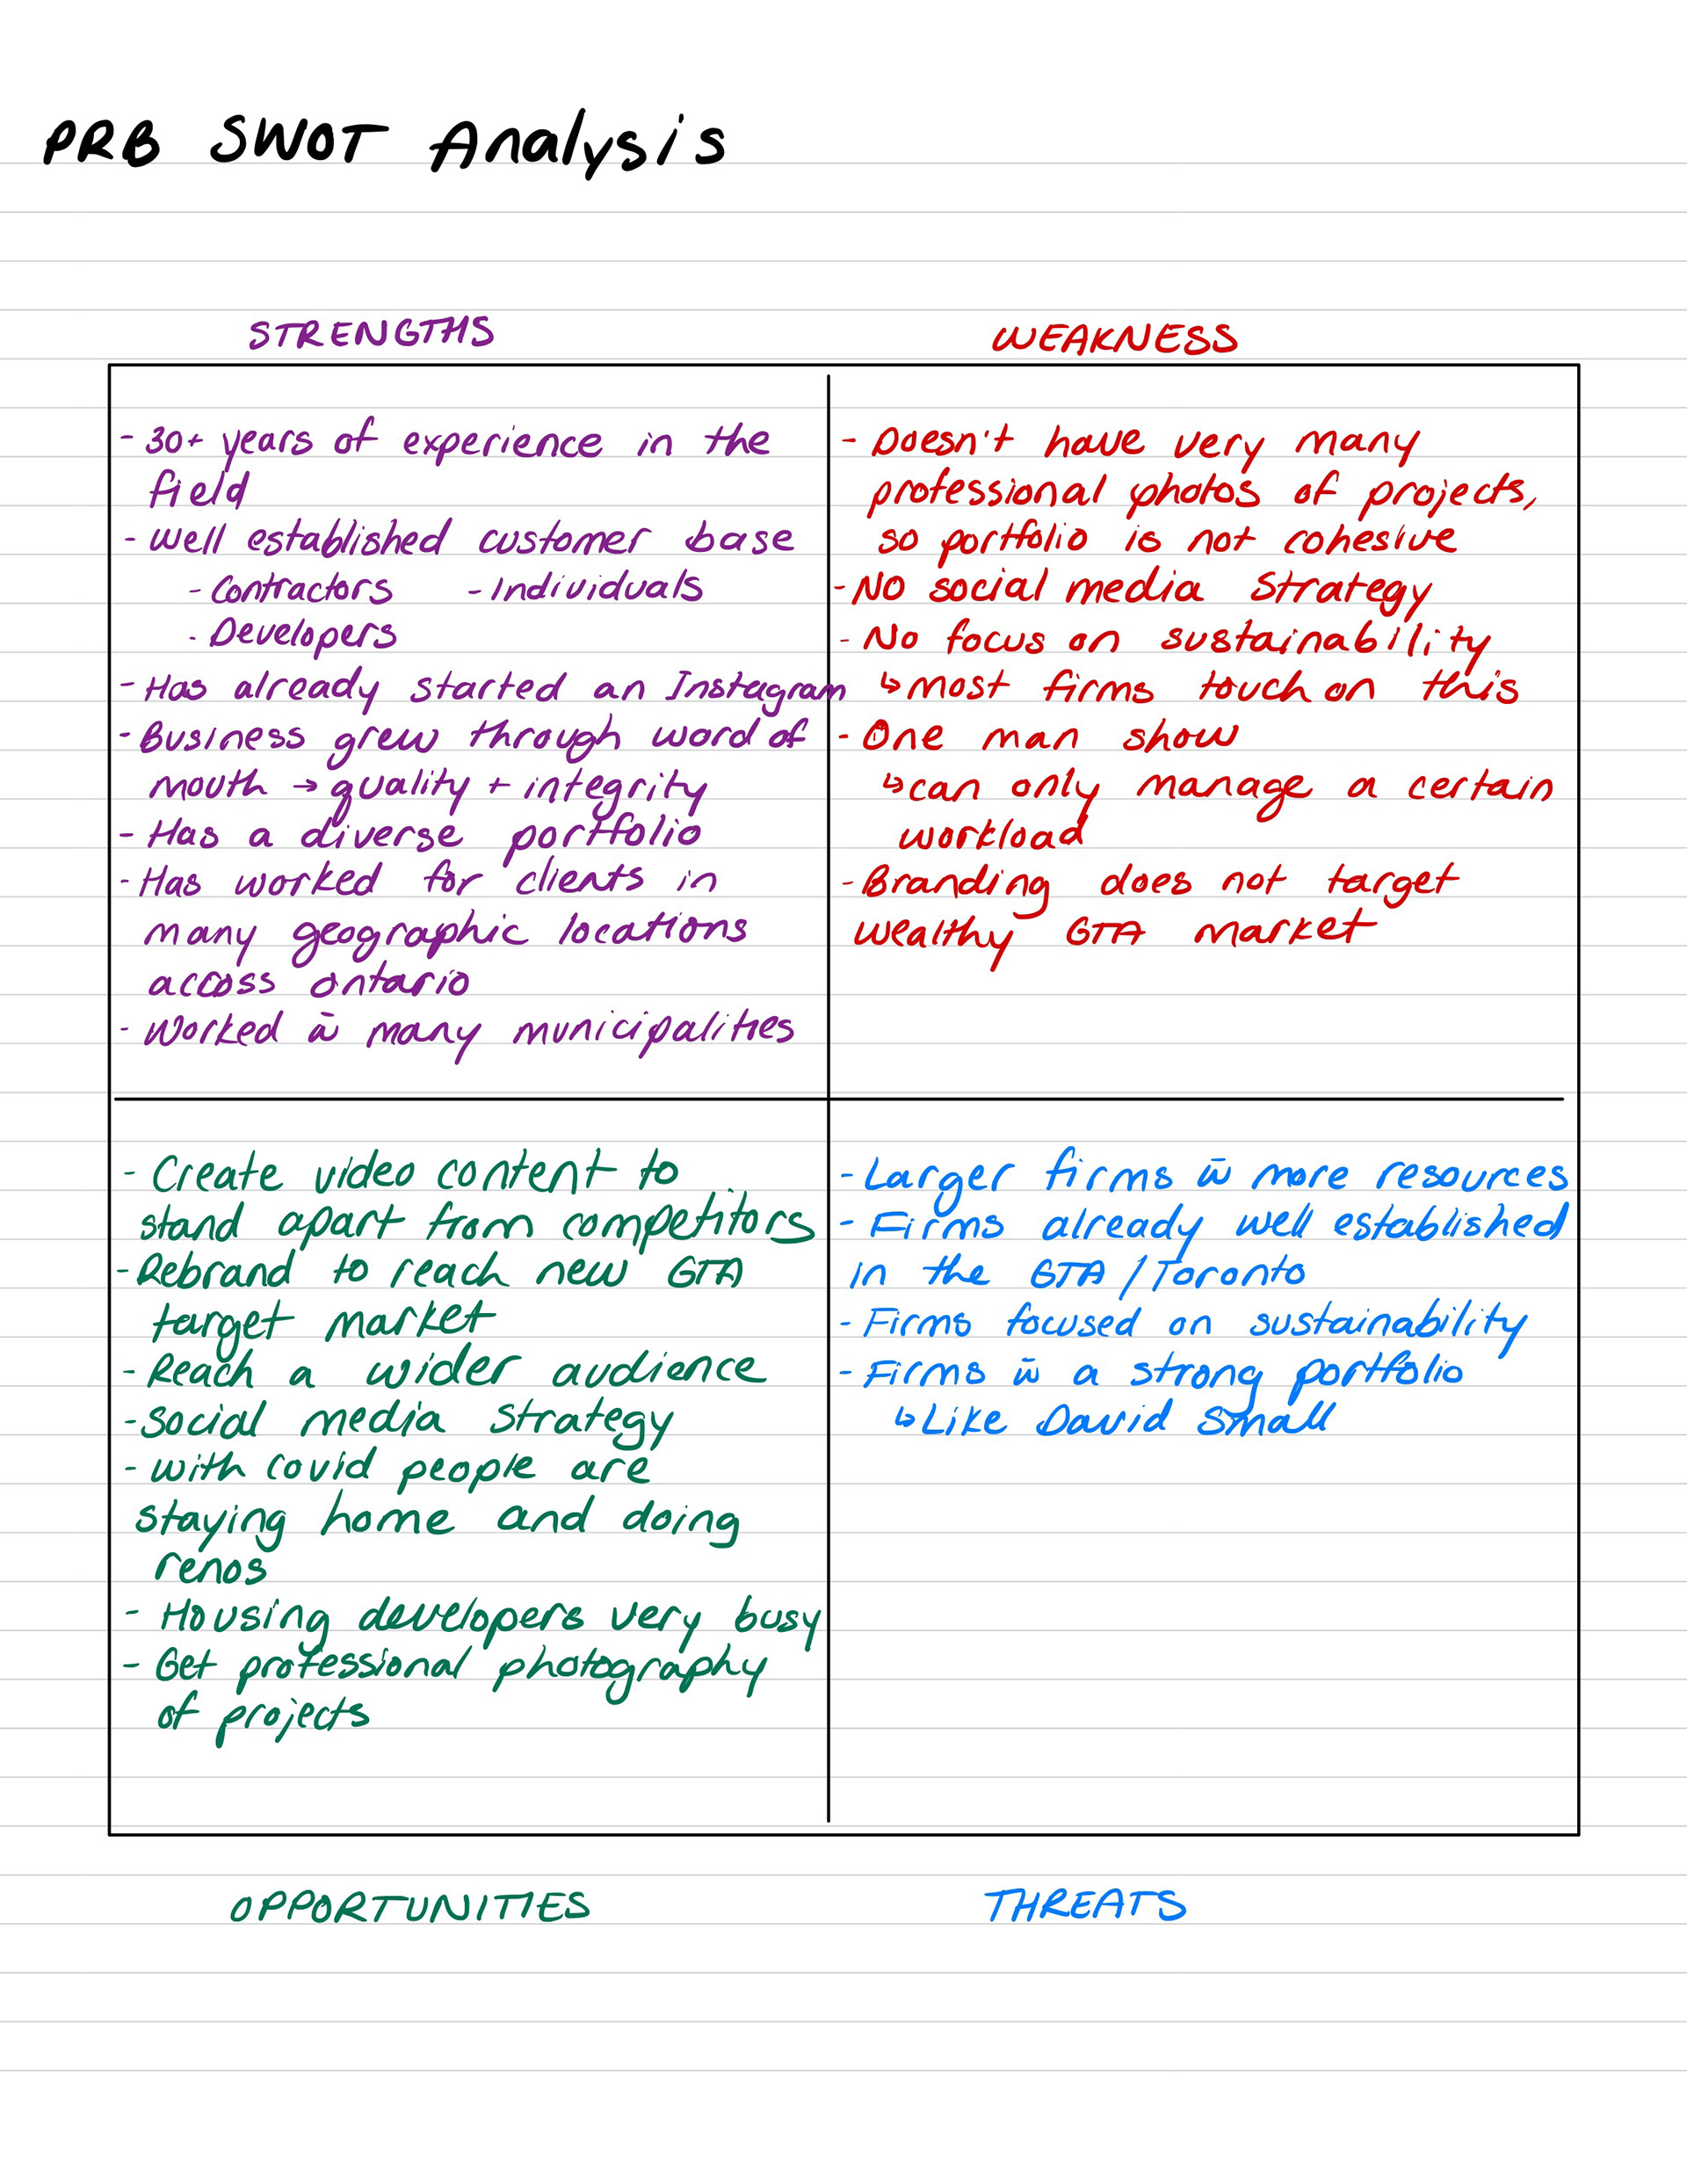 PRB SWOT Analysis
STRENGTHS
- 30+ years of experience in the
field
- well established customer base
- Contractors - Individuals
- Developers
- Has already started an Instagram
- Business grew through word of
mouth → quality + integrity
- Has a diverse portfolio
- Has worked for clients in
many geographic locations
across ontario
- Worked w̄ many municipalities
WEAKNESS
- Doesn't have very many
professional photos of projects,
so portfolio is not cohesive
- No social media strategy
- No focus on sustainability
↳ most firms touch on this
- One man show
↳ can only manage a certain
workload
- Branding does not target
wealthy GTA market
- Create video content to
stand apart from competitors
- Rebrand to reach new GTA
target market
- Reach a wider audience
- social media strategy
- with covid people are
staying home and doing
renos
- Housing developers very busy
- Get professional photography
of projects
OPPORTUNITIES
- Larger firms w̄ more resources
- Firms already well established
in the GTA / Toronto
- Firms focused on sustainability
- Firms w̄ a strong portfolio
↳ Like David Small
THREATS